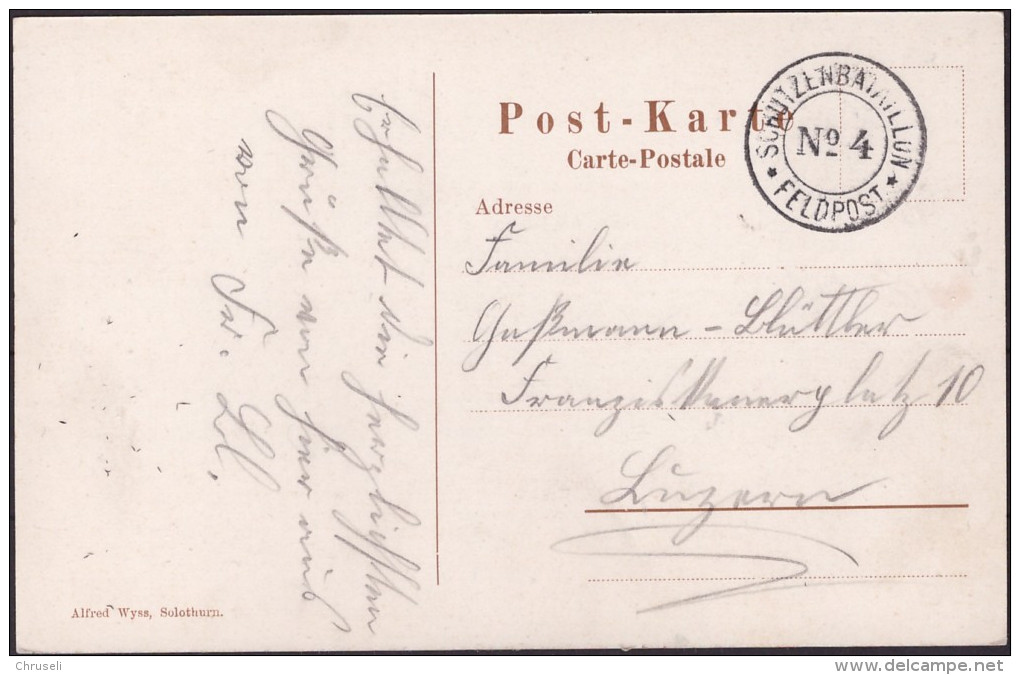 Erhaltet die herzlichsten
Grüße von hier aus
von Fr.
Post-Karte
Carte-Postale
SCHÜTZENBATAILLON
No 4
* FELDPOST *
Adresse
Familie
Gaßmann - Blättler
Franziskanerplatz 10
Luzern
Alfred Wyss, Solothurn.
Chruseli
delcampe.net